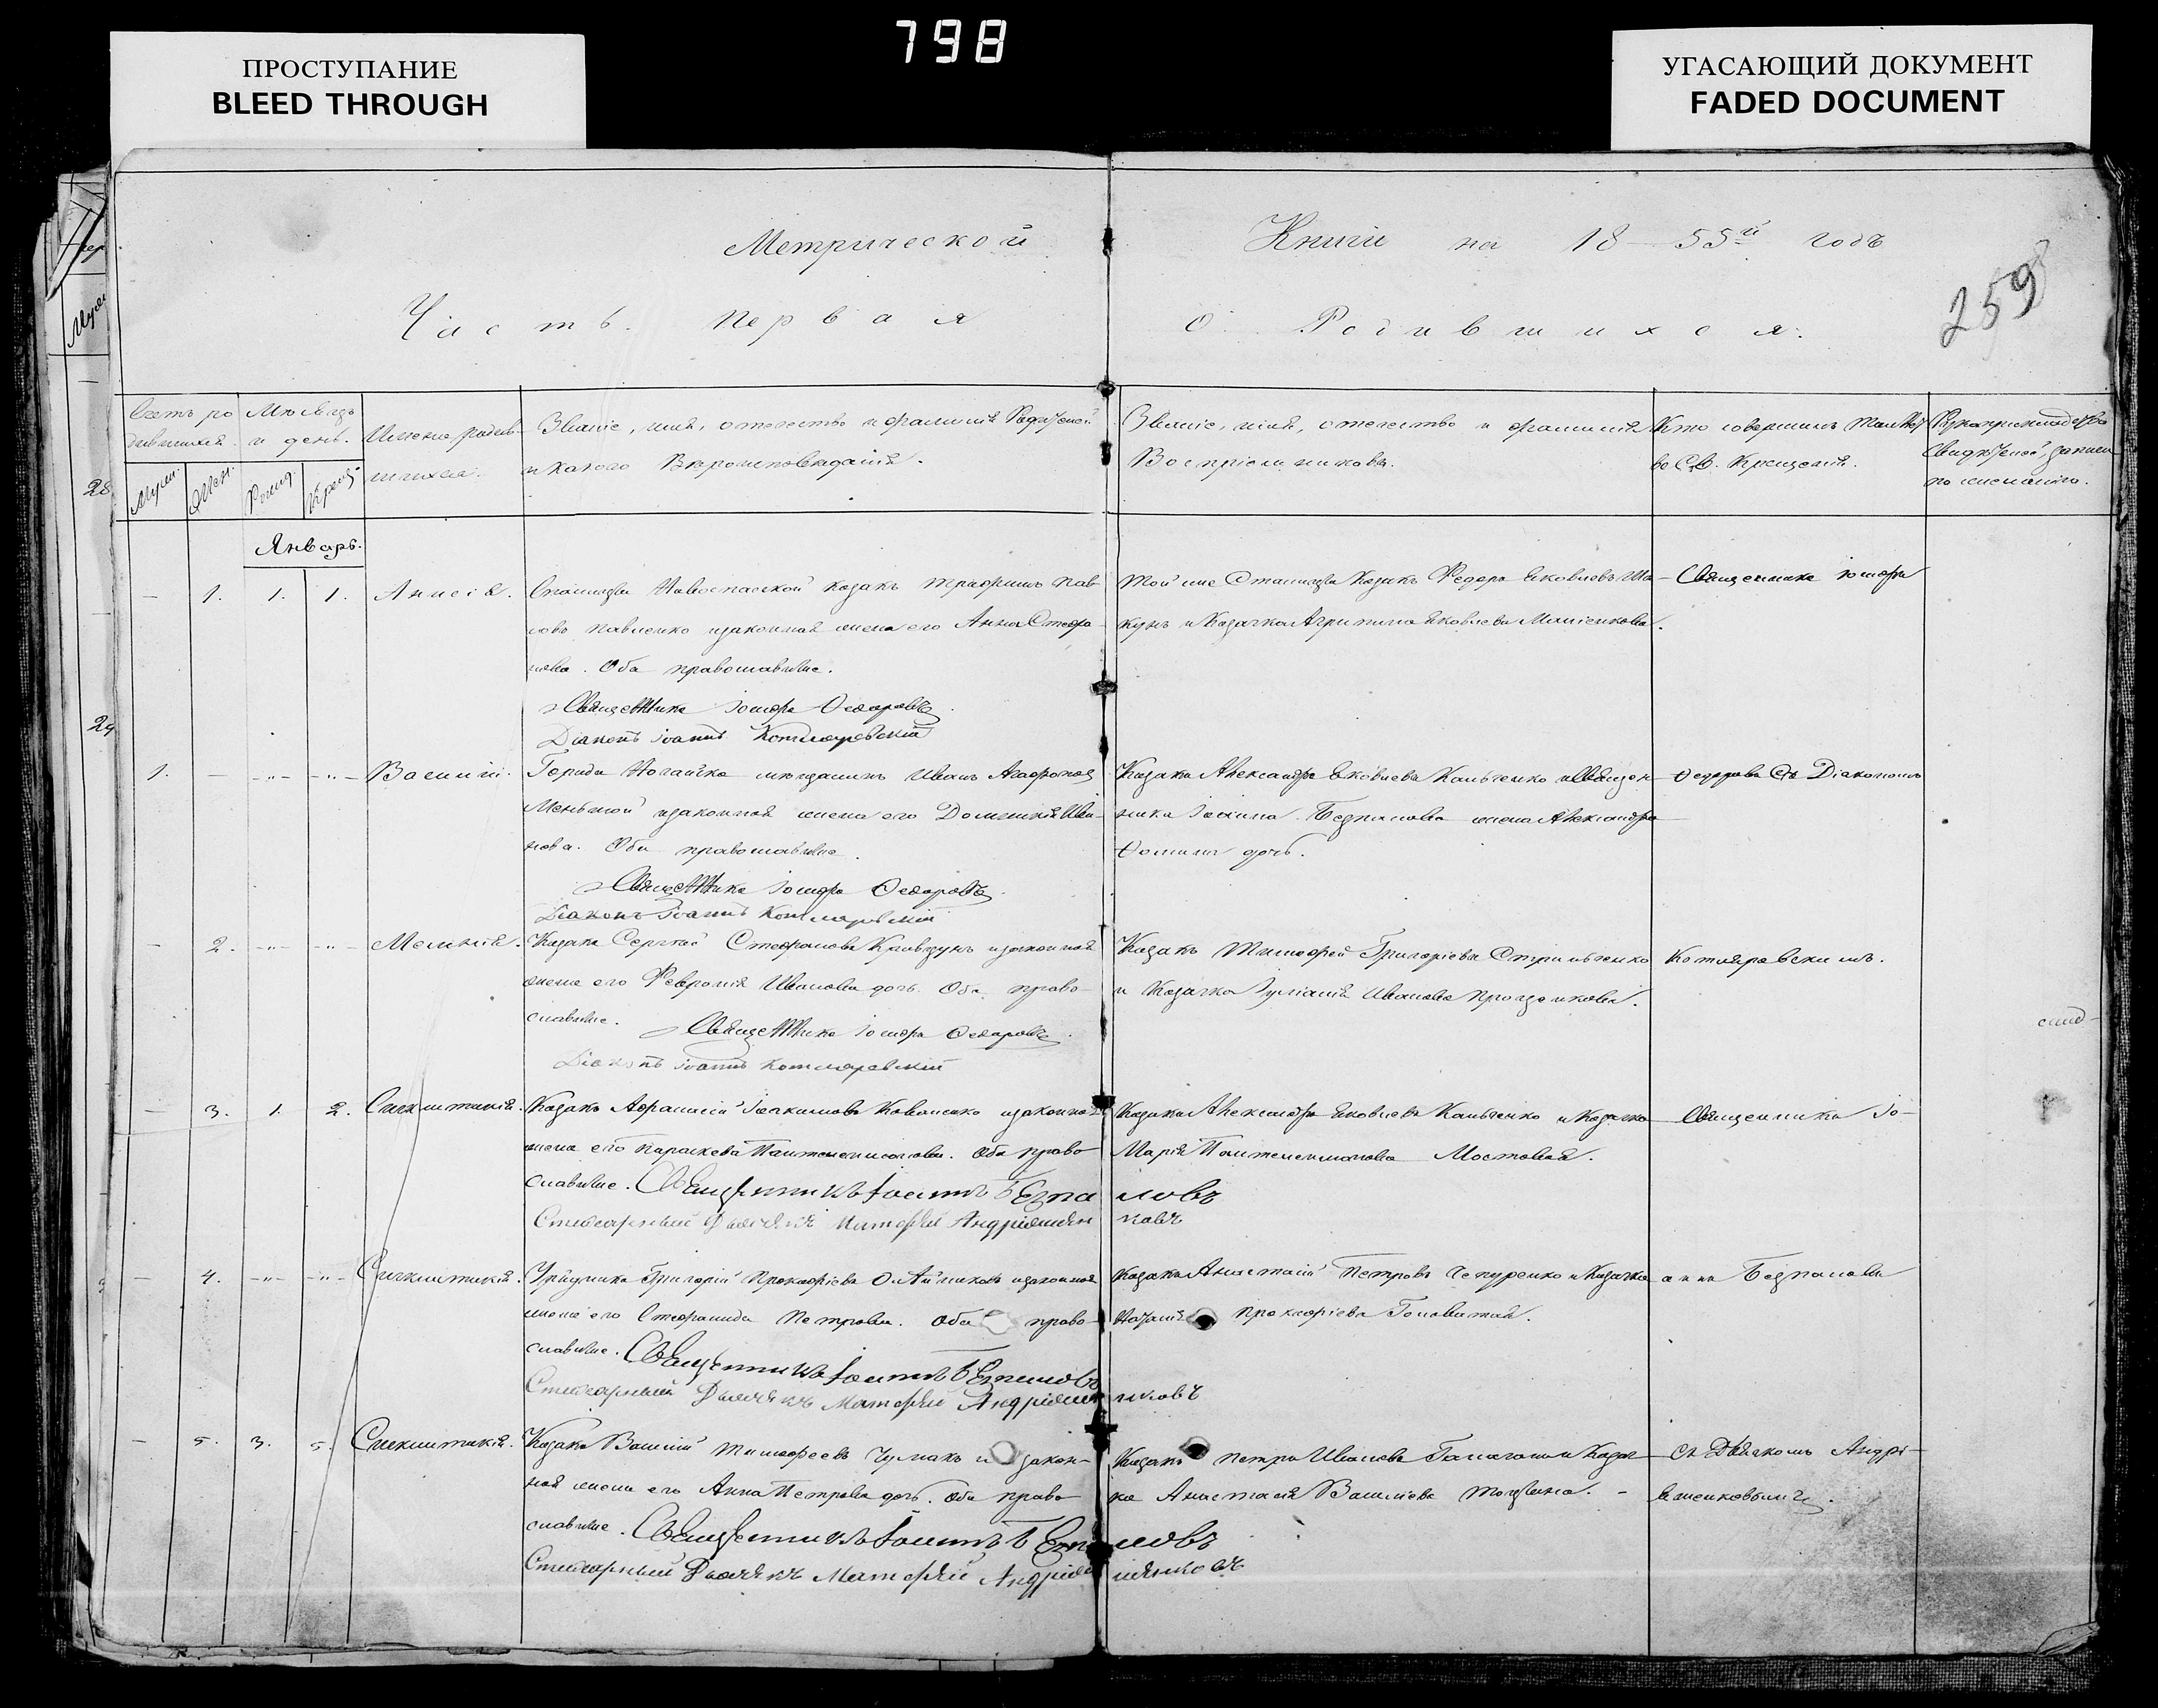 798
ПРОСТУПАНИЕ
BLEED THROUGH
УГАСАЮЩИЙ ДОКУМЕНТ
FADED DOCUMENT
Метрической Книги на 1855й годъ
259
Часть первая О Родившихся.
Счетъ ро Мѣсяцъ
дившихся и день.
Имена родив-
шихся.
Званіе, имя, отечество и фамилія Родителей
и какого Вѣроисповѣданія.
Званіе, имя, отечество и фамилія
Воспріемниковъ.
Кто совершалъ Таинст
во Св. Крещенія.
Рукоприкладство
свидѣтелей записи
по желанію.
Муж. Жен. Рожд. Крещ.
Январь.
— 1. 1. 1. Анисія.
Станицы Новоспаской козакъ Трифонъ Пав-
ловъ Павленко и законная жена его Анна Стефа-
нова. Оба православные.
Священникъ Іосифъ Федоровъ
Діаконъ Іоаннъ Котляревскій
Той же Станицы Козакъ Федоръ Яковлевъ
и Козачка Агрипина Яковлева
Священникъ Іосифъ
1. — -"- -"- Василій.
Города Ногайска мѣщанинъ Иванъ
и законная жена его Домникія Ива-
нова. Оба православные.
Священникъ Іосифъ Федоровъ
Діаконъ Іоаннъ Котляревскій
Козакъ Александръ Яковлевъ Кольченко и Священ-
ника Іоанна Безпалова жена Александра
Фомина дочь.
Федоровъ съ Діакономъ
— 2. -"- -"- Меланія.
Козакъ Сергѣй Стефановъ и законная
жена его Февронія Иванова дочь. Оба право-
славные.
Священникъ Іосифъ Федоровъ
Діаконъ Іоаннъ Котляревскій
Козакъ Тимофей Григорьевъ Стрильченко
и Козачка Іуліанія Иванова Проценкова.
Котляревскимъ.
— 3. 1. 2. Синклитикія.
Козакъ Афанасій Іоакимовъ Коваленко и законная
жена его Параскева Пантелеимонова. Оба право-
славные. Священникъ Іоаннъ Безпаловъ
Матфей Андріяшенковъ
Козакъ Александръ Яковлевъ Кольченко и Козачка
Марія Пантелеимонова Мостовая.
Священникъ Іо-
— 4. -"- -"- Синклитикія.
Урядникъ Григорій Прокофіевъ и законная
жена его Стефанида Петрова. Оба право-
славные. Священникъ Іоаннъ Безпаловъ
Матфей Андріяшенковъ
Козакъ Анастасій Петровъ Чепуренко и Козачка
Прокофіева Головатая.
аннъ Безпаловъ
— 5. 3. 5. Синклитикія.
Козакъ Василій Тимофеевъ Чумакъ и закон-
ная жена его Анна Петрова дочь. Оба право-
славные. Священникъ Іоаннъ Безпаловъ
Матфей Андріяшенковъ
Козакъ Петръ Ивановъ и Козач-
ка Анастасія Васильева
съ Дьячкомъ Андрі-
яшенковымъ.
28
29